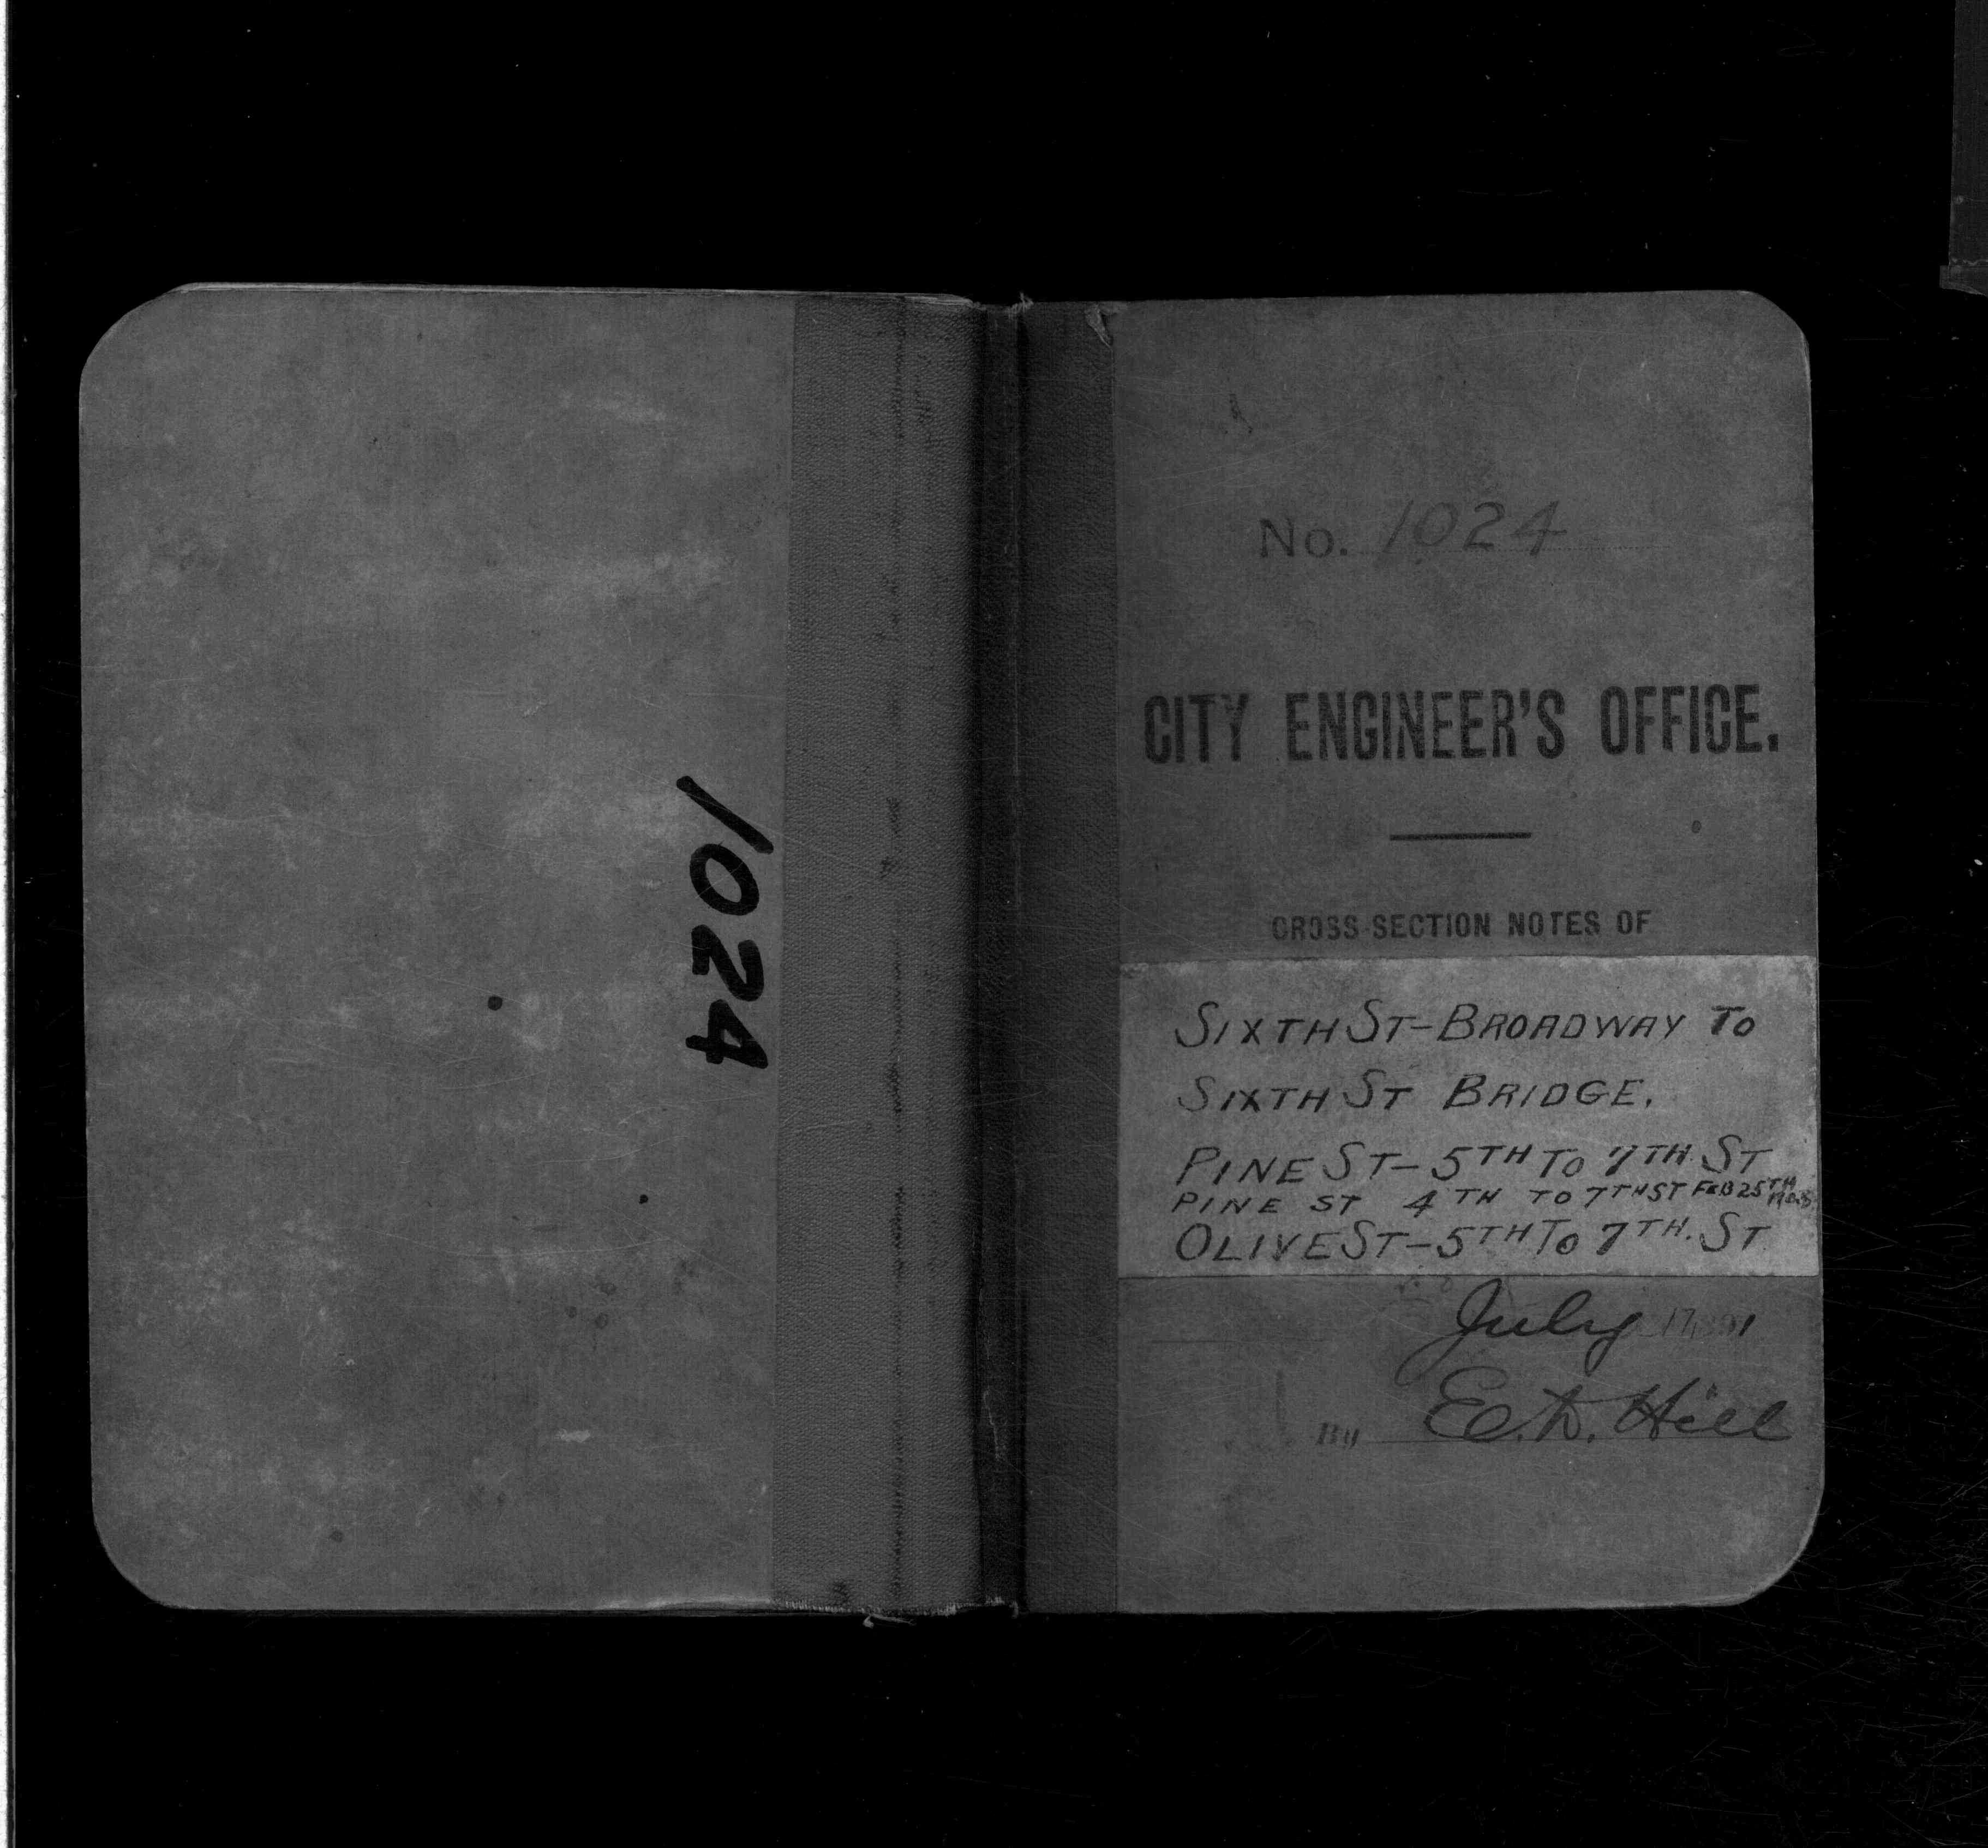 1024
No. 1024
CITY ENGINEER'S OFFICE.
CROSS-SECTION NOTES OF
SIXTH ST-BROADWAY TO
SIXTH ST BRIDGE.
PINE ST-5TH TO 7TH ST
PINE ST 4TH TO 7TH ST FEB 25TH
OLIVE ST-5TH TO 7TH. ST
July 17, 1891
By E. D. Hill